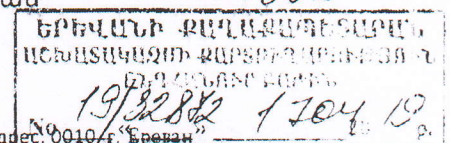 ԵՐԵՎԱՆԻ ՔԱՂԱՔԱՊԵՏԱՐԱՆ
ԱՇԽԱՏԱԿԱԶՄԻ ՔԱՐՏՈՒՂԱՐՈՒԹՅԱՆ
ԸՆԴՀԱՆՈՒՐ ԲԱԺԻՆ
№ 19/32872 1704 19
рес: 0010 г. "Ереван"